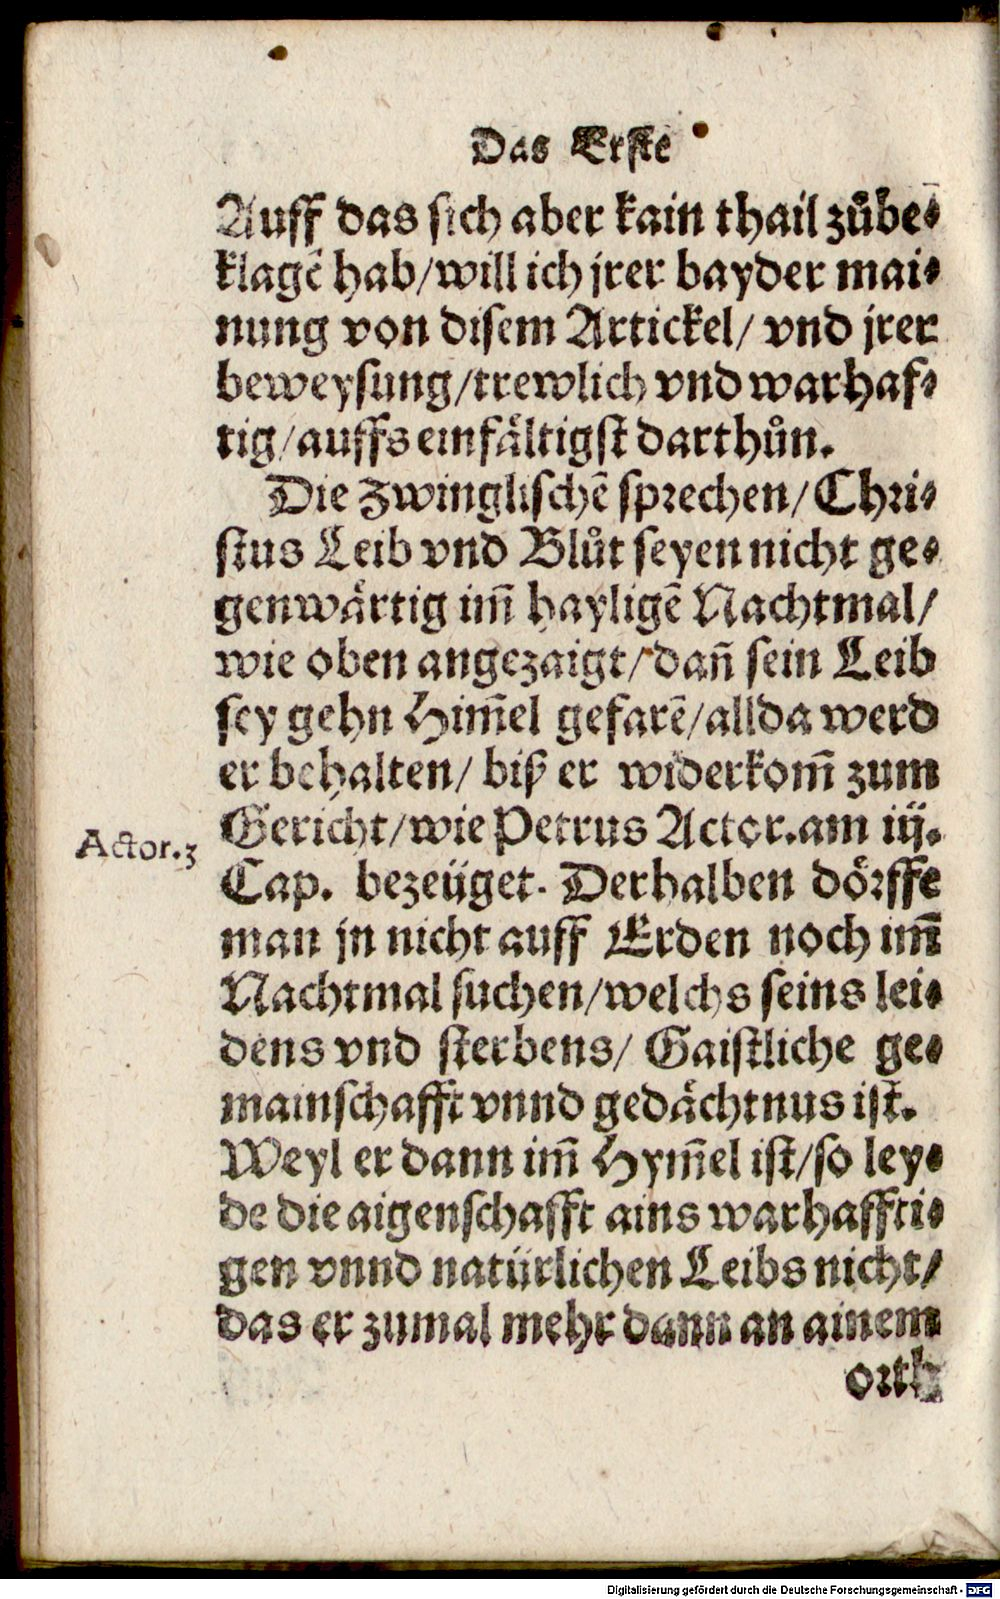 Das Erste
Auff das sich aber kain thail zůbe⸗
klagē hab/ will ich jrer bayder mai⸗
nung von disem Artickel/ vnd jrer
beweysung/ trewlich vnd warhaf⸗
tig/ auffs einfältigst darthůn.
Die Zwinglischē sprechen/ Chri⸗
stus Leib vnd Blůt seyen nicht ge⸗
genwärtig im̄ hayligē Nachtmal/
wie oben angezaigt/ dañ sein Leib
sey gehn Him̄el gefarē/ allda werd
er behalten/ biß er widerkom̄ zum
Gericht/ wie Petrus Actor. am iij.
Actor. 3
Cap. bezeüget. Derhalben dörffe
man jn nicht auff Erden noch im̄
Nachtmal suchen/ welchs seins lei⸗
dens vnd sterbens/ Gaistliche ge⸗
mainschafft vnnd gedächtnus ist.
Weyl er dann im̄ Hym̄el ist/ so ley⸗
de die aigenschafft ains warhaffti⸗
gen vnnd natürlichen Leibs nicht/
das er zumal mehr dann an ainem
orth
Digitalisierung gefördert durch die Deutsche Forschungsgemeinschaft - DFG